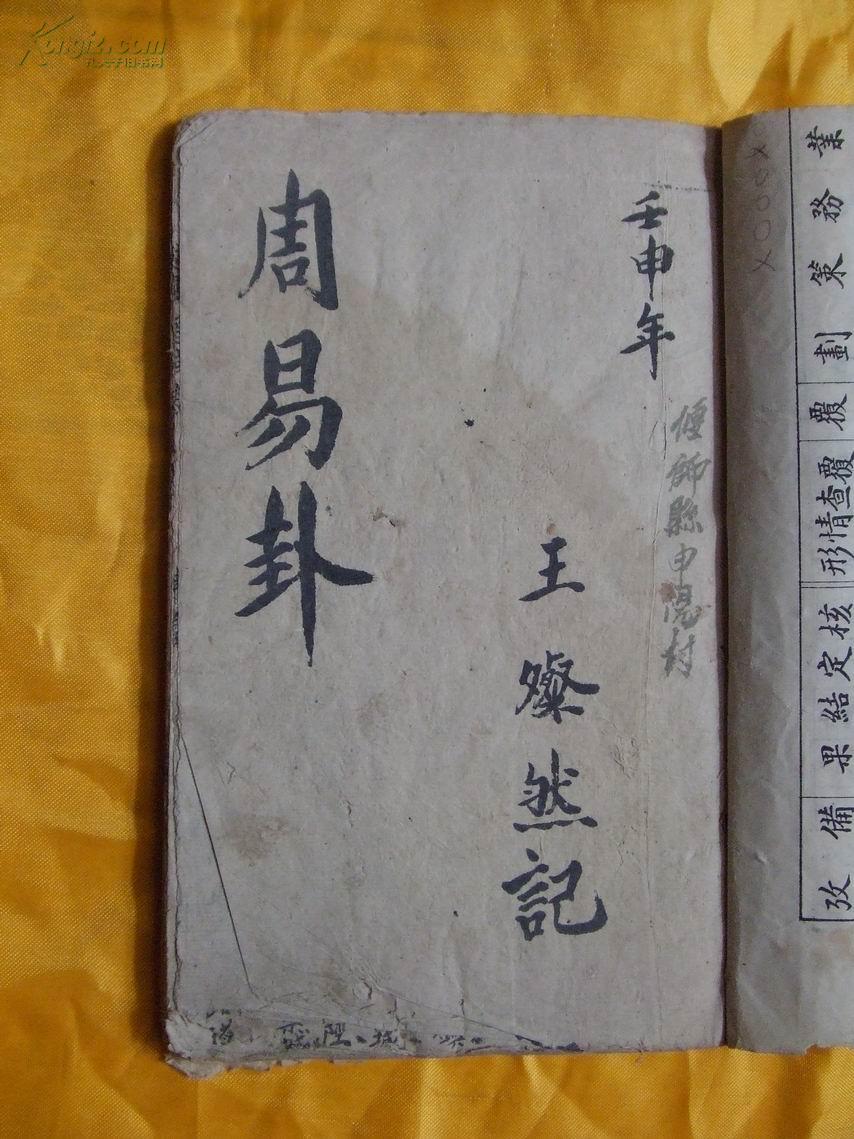 Kongfz.com
孔夫子旧书网
業務策劃
覆
覆查情形
核定結果
備攷
壬申年
偃師縣申陽村
王燦然記
周易卦